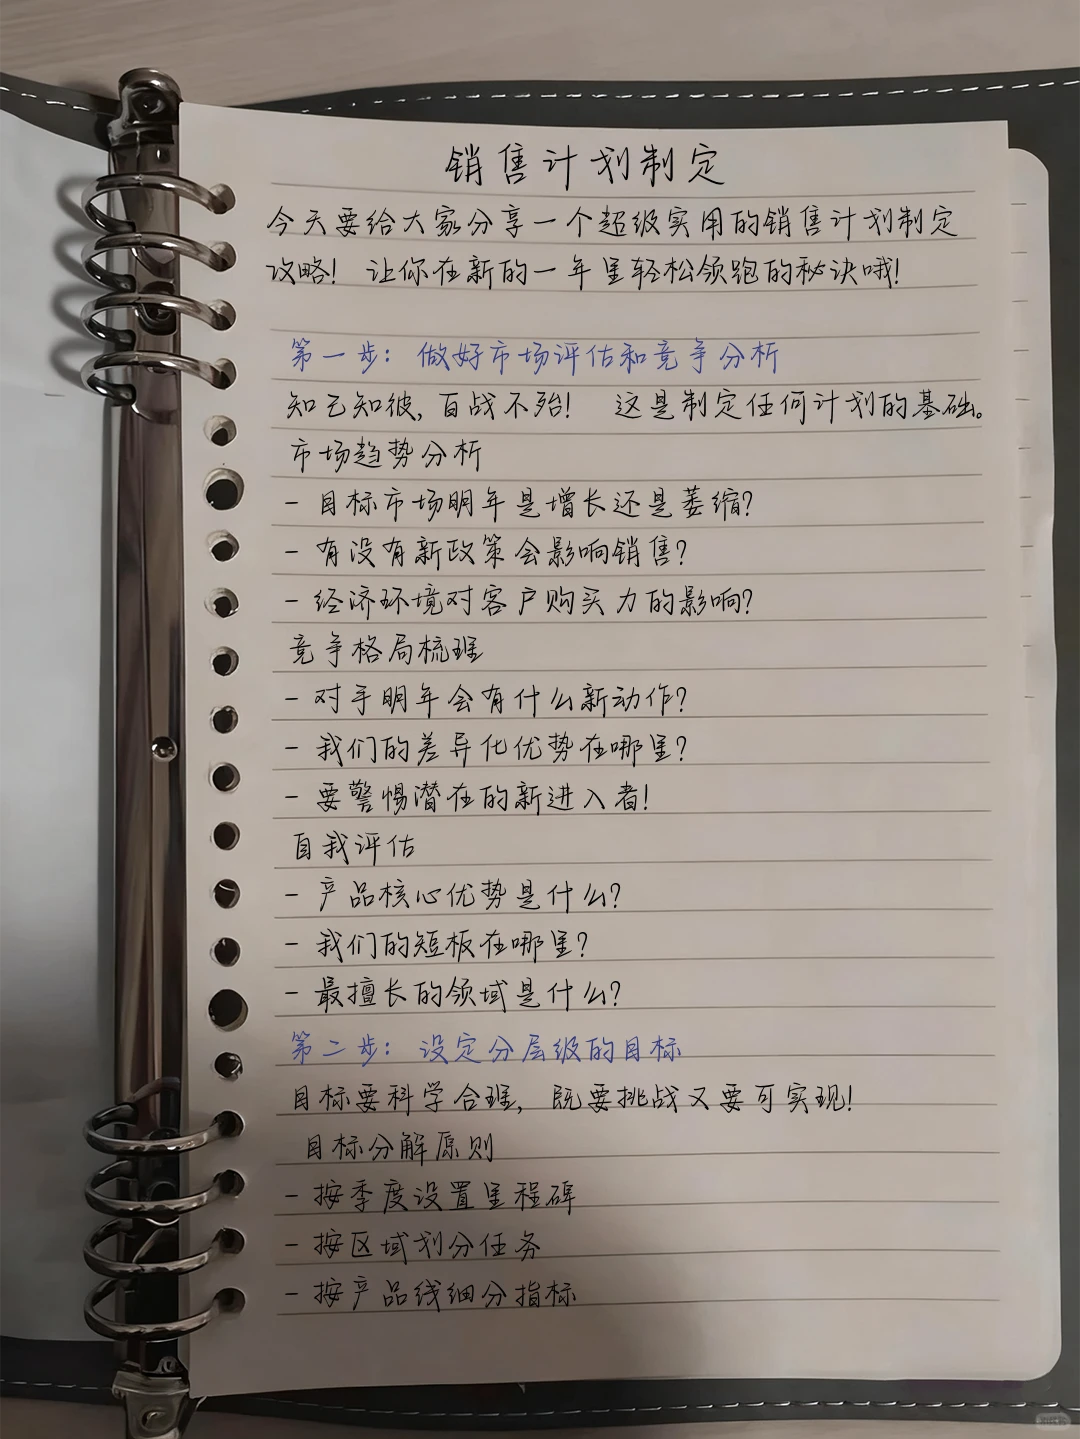 销售计划制定
今天要给大家分享一个超级实用的销售计划制定
攻略！让你在新的一年里轻松领跑的秘诀哦！
第一步：做好市场评估和竞争分析
知己知彼，百战不殆！ 这是制定任何计划的基础。
市场趋势分析
- 目标市场明年是增长还是萎缩？
- 有没有新政策会影响销售？
- 经济环境对客户购买力的影响？
竞争格局梳理
- 对手明年会有什么新动作？
- 我们的差异化优势在哪里？
- 要警惕潜在的新进入者！
自我评估
- 产品核心优势是什么？
- 我们的短板在哪里？
- 最擅长的领域是什么？
第二步：设定分层级的目标
目标要科学合理，既要挑战又要可实现！
目标分解原则
- 按季度设置里程碑
- 按区域划分任务
- 按产品线细分指标